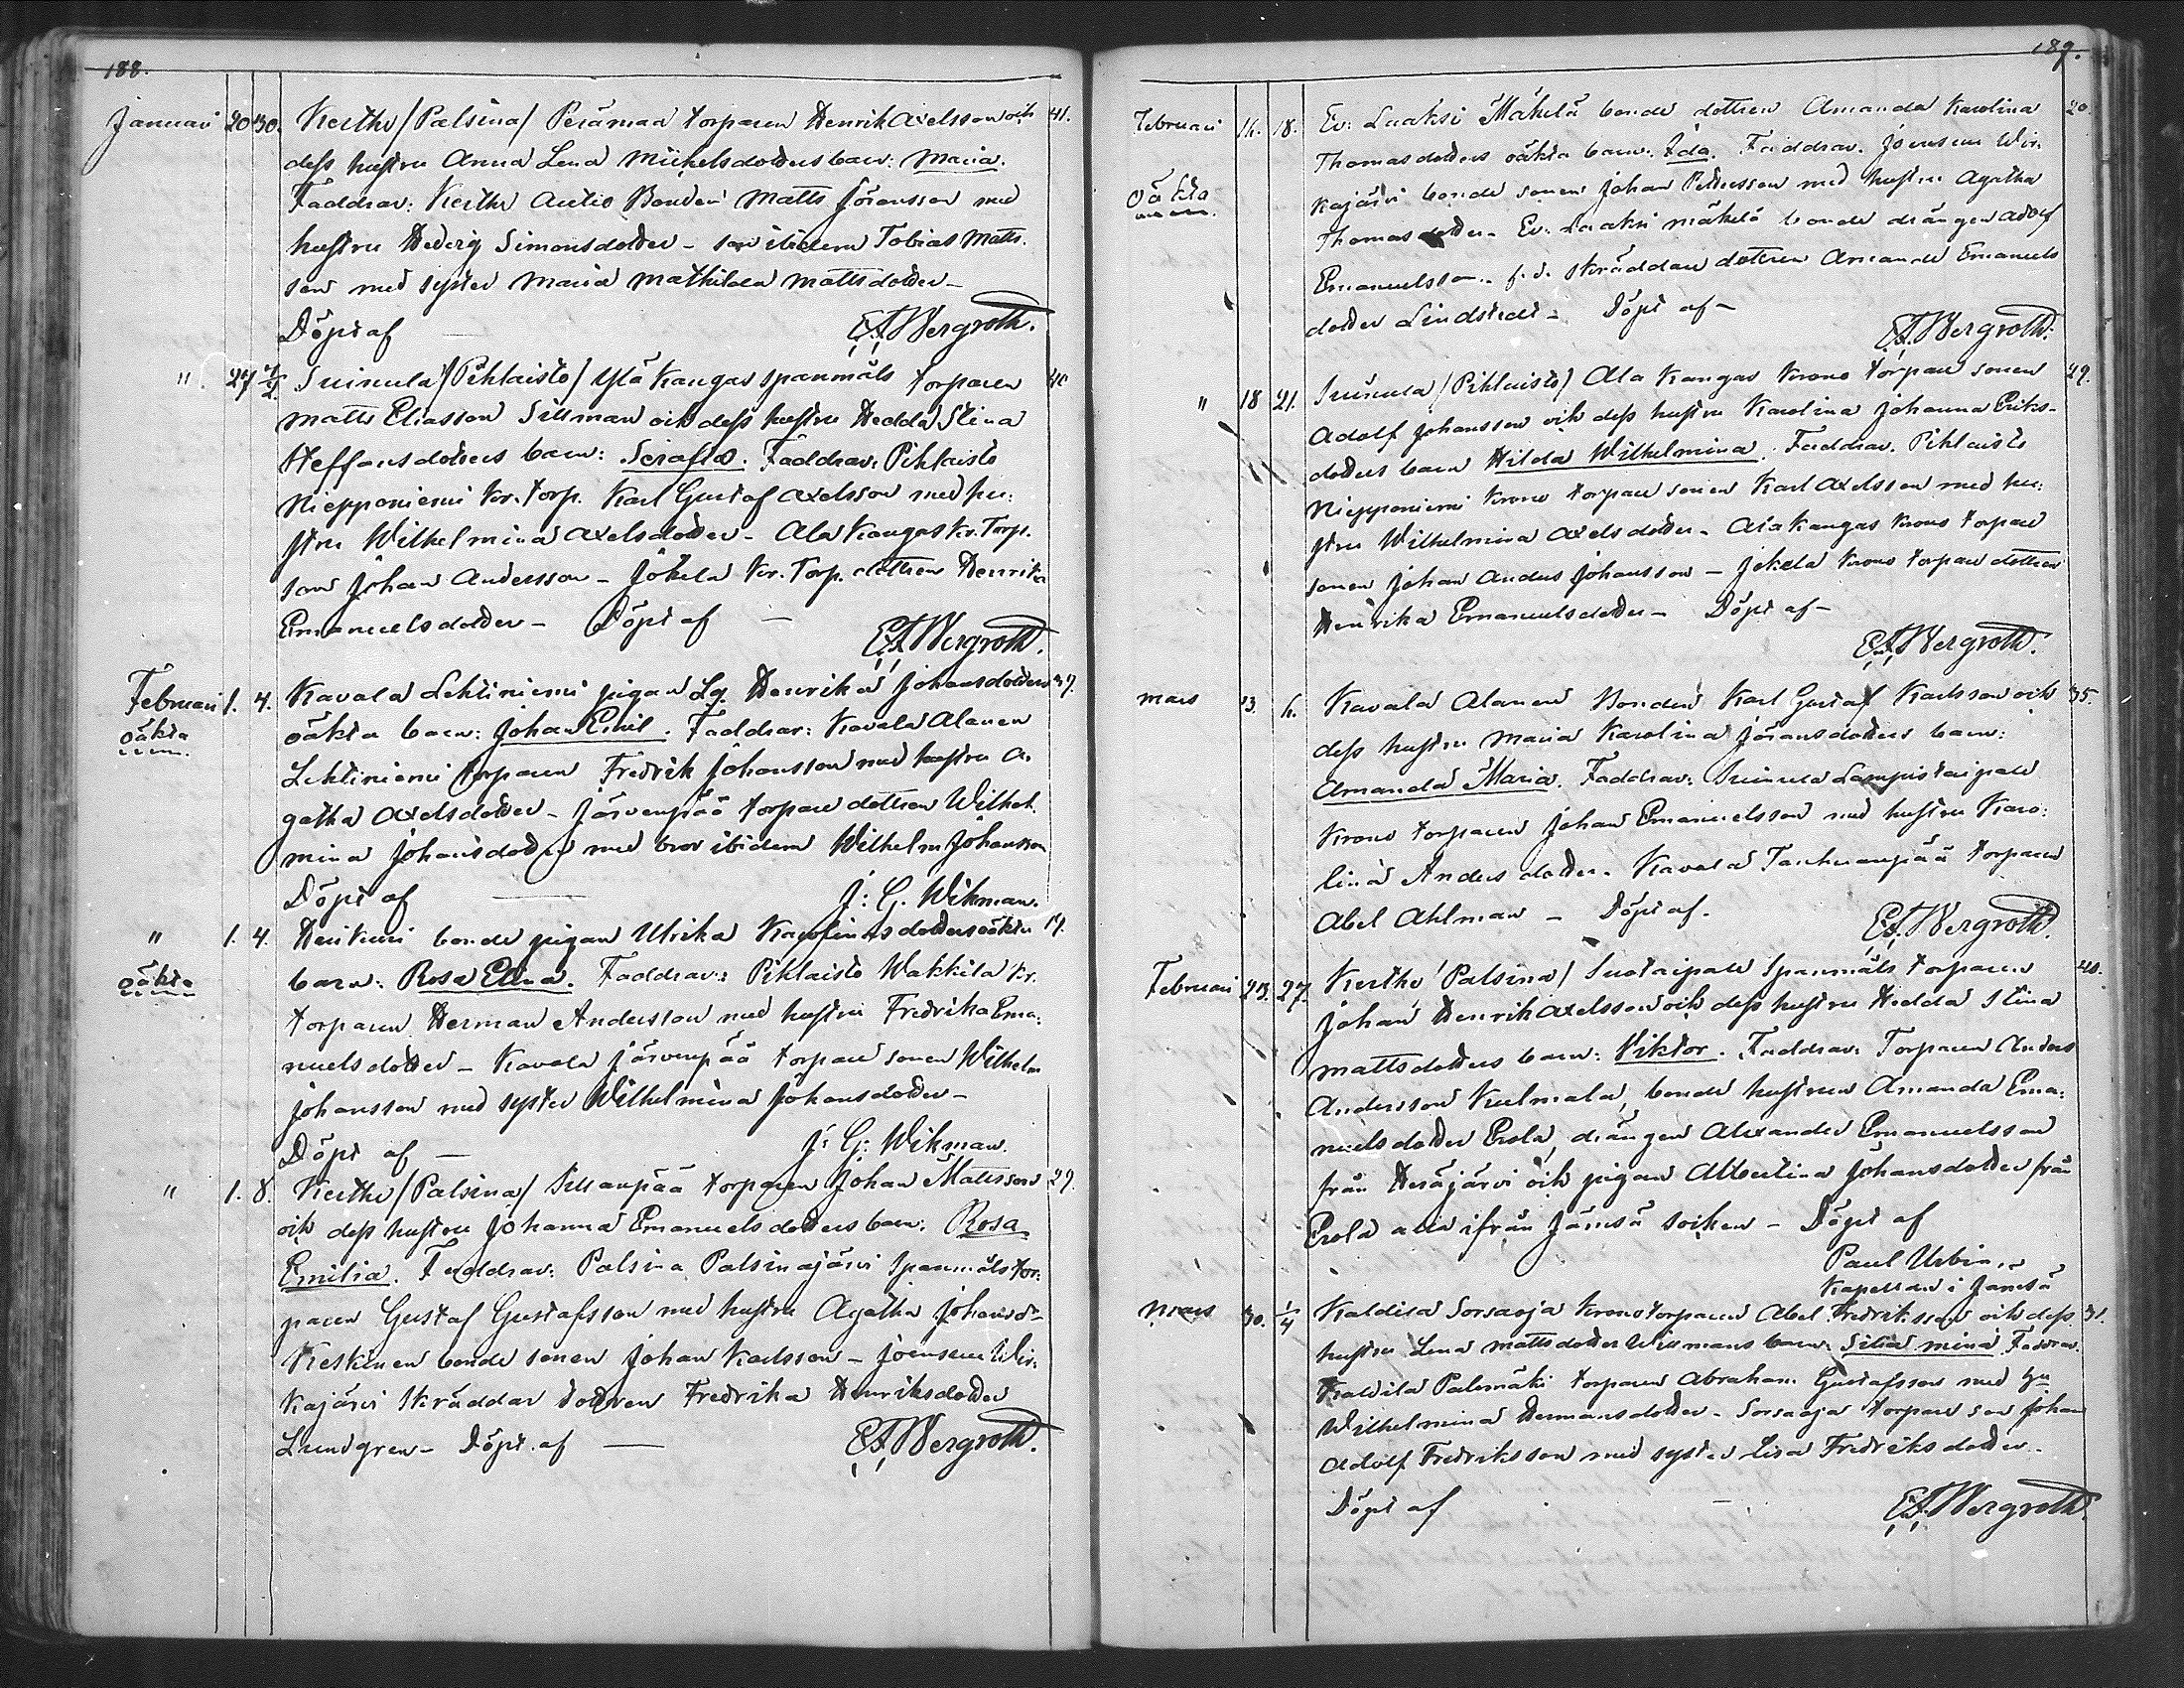 188.
Januari 20 30. Kertte /Palsina/ Perämaa torparen Henrik Axelsson och 41.
dess hustru Anna Lena Mickelsdotters barn: Maria.
Faddrar: Kertte Autio Bonden Matts Göransson med
hustru Hedvig Simonsdotter – son ibidem Tobias Matts-
son med syster Maria Mathilda Mattsdotter –
Döpt af E. F. Bergroth.
" 27 1/2. Suinula /Pihlaisto/ Ylä Kangas spanmåls torparen 40
Matts Eliasson Sillman och dess hustru Hedda Stina
Steffansdotters barn: Serafia. Faddrar: Pihlaisto
Niepponiemi Kr. torp. Karl Gustaf Axelsson med hu-
stru Wilhelmina Axelsdotter – Ala Kangas Kr. Torp.
son Johan Andersson – Jokela Kr. Torp. dottren Henrika
Emanuelsdotter – Döpt af –
E. F. Bergroth.
Februari 1. 4. Kavala Lehtiniemi pigan Lg. Henrika Johansdotters 39.
oäkta oäkta barn: Johan Emil. Faddrar: Kavala Alanen
Lehtiniemi torparen Fredrik Johansson med hustru A-
gatha Axelsdotter – Järvenpää torpare dottren Wilhel-
mina Johansdotter med bror ibidem Wilhelm Johansson
Döpt af J: G. Wikman.
" 1. 4. bonde pigan Ulrika Karolina dotters oäkta 19.
oäkta barn: Rosa Elina. Faddrar: Pihlaisto Wakkila Kr.
torparen Herman Andersson med hustru Fredrika Ema-
nuelsdotter – Kavala Järvenpää torpare sonen Wilhelm
Johansson med syster Wilhelmina Johansdotter –
Döpt af – J: G: Wikman.
" 1. 8. Kertte /Palsina/ Sillanpää torparen Johan Mattsson 29.
och dess hustru Johanna Emanuelsdotters barn: Rosa
Emilia. Faddrar: Palsina Palsinajärvi Spanmåls tor-
paren Gustaf Gustafsson med hustru Agatha Johansdr
Keskinen bonde sonen Johan Karlsson – Joensuu Wir-
kajärvi skräddar dottren Fredrika Henriksdotter
Lundgren – Döpt af — E. F. Bergroth.
189.
Februari 14. 18. Ev: Laaksi Mäkelä bonde dottren Amanda Karolina 20.
Thomasdotters oäkta barn: Ida. Faddrar. Joensuu Wir-
oäkta kajärvi bonde sonen Johan Pettersson med hustru Agatha
Thomasdotter – Ev: Laaksi Mäkelä bonde drängen Adolf
Emanuelsson – f. d. skräddare dottren Amanda Emanuels
dotter Lindstedt – Döpt af –
E. F. Bergroth.
" 18 21. Suinula /Pihlaisto/ Ala Kangas Krono torpare sonen 29.
Adolf Johansson och dess hustru Karolina Johanna Eriks-
dotters barn Hilda Wilhelmina. Faddrar. Pihlaisto
Niepponiemi krono torpare sonen Karl Axelsson med hu-
stru Wilhelmina Axelsdotter – Alakangas Krono torpare
sonen Johan Anders Johansson – Jokela Krono torpare dottren
Henrika Emanuelsdotter – Döpt af –
E. F. Bergroth.
Mars 3. 4. Kavala Alanen Bonden Karl Gustaf Karlsson och 35.
dess hustru Maria Karolina Göransdotters barn:
Amanda Maria. Faddrar: Suinula Lampistaipale
krono torparen Johan Emanuelsson med hustru Karo-
lina Anders dotter. Kavala torparen
Abel Ahlman – Döpt af –
E. F. Bergroth.
Februari 23. 27. Kertte /Palsina/ Suotaipale Spanmåls torparen 40.
Johan Henrik Axelsson och dess hustru Hedda Stina
Mattsdotters barn: Viktor. Faddrar: Torparen Anders
Andersson Kulmala, bonde hustrun Amanda Ema-
nuelsdotter Erola, drängen Alexander Emanuelsson
från Heräjärvi och pigan Albertina Johansdotter från
Erola alla ifrån Jämsä socken – Döpt af
Paul Urbin.
Kapellan i Jämsä
Mars 30. 1/4 Kaldila Sorsaoja krono torparen Abel Fredriksson och dess 31.
hustru Lena Mattsdotter Willmans barn: Silia Mina. Faddrar.
Kaldila Palomäki torparen Abraham Gustafsson med hu
Wilhelmina Hermansdotter – Sorsaoja torpare son Johan
Adolf Fredriksson med syster Lisa Fredriksdotter –
Döpt af – E. F. Bergroth.